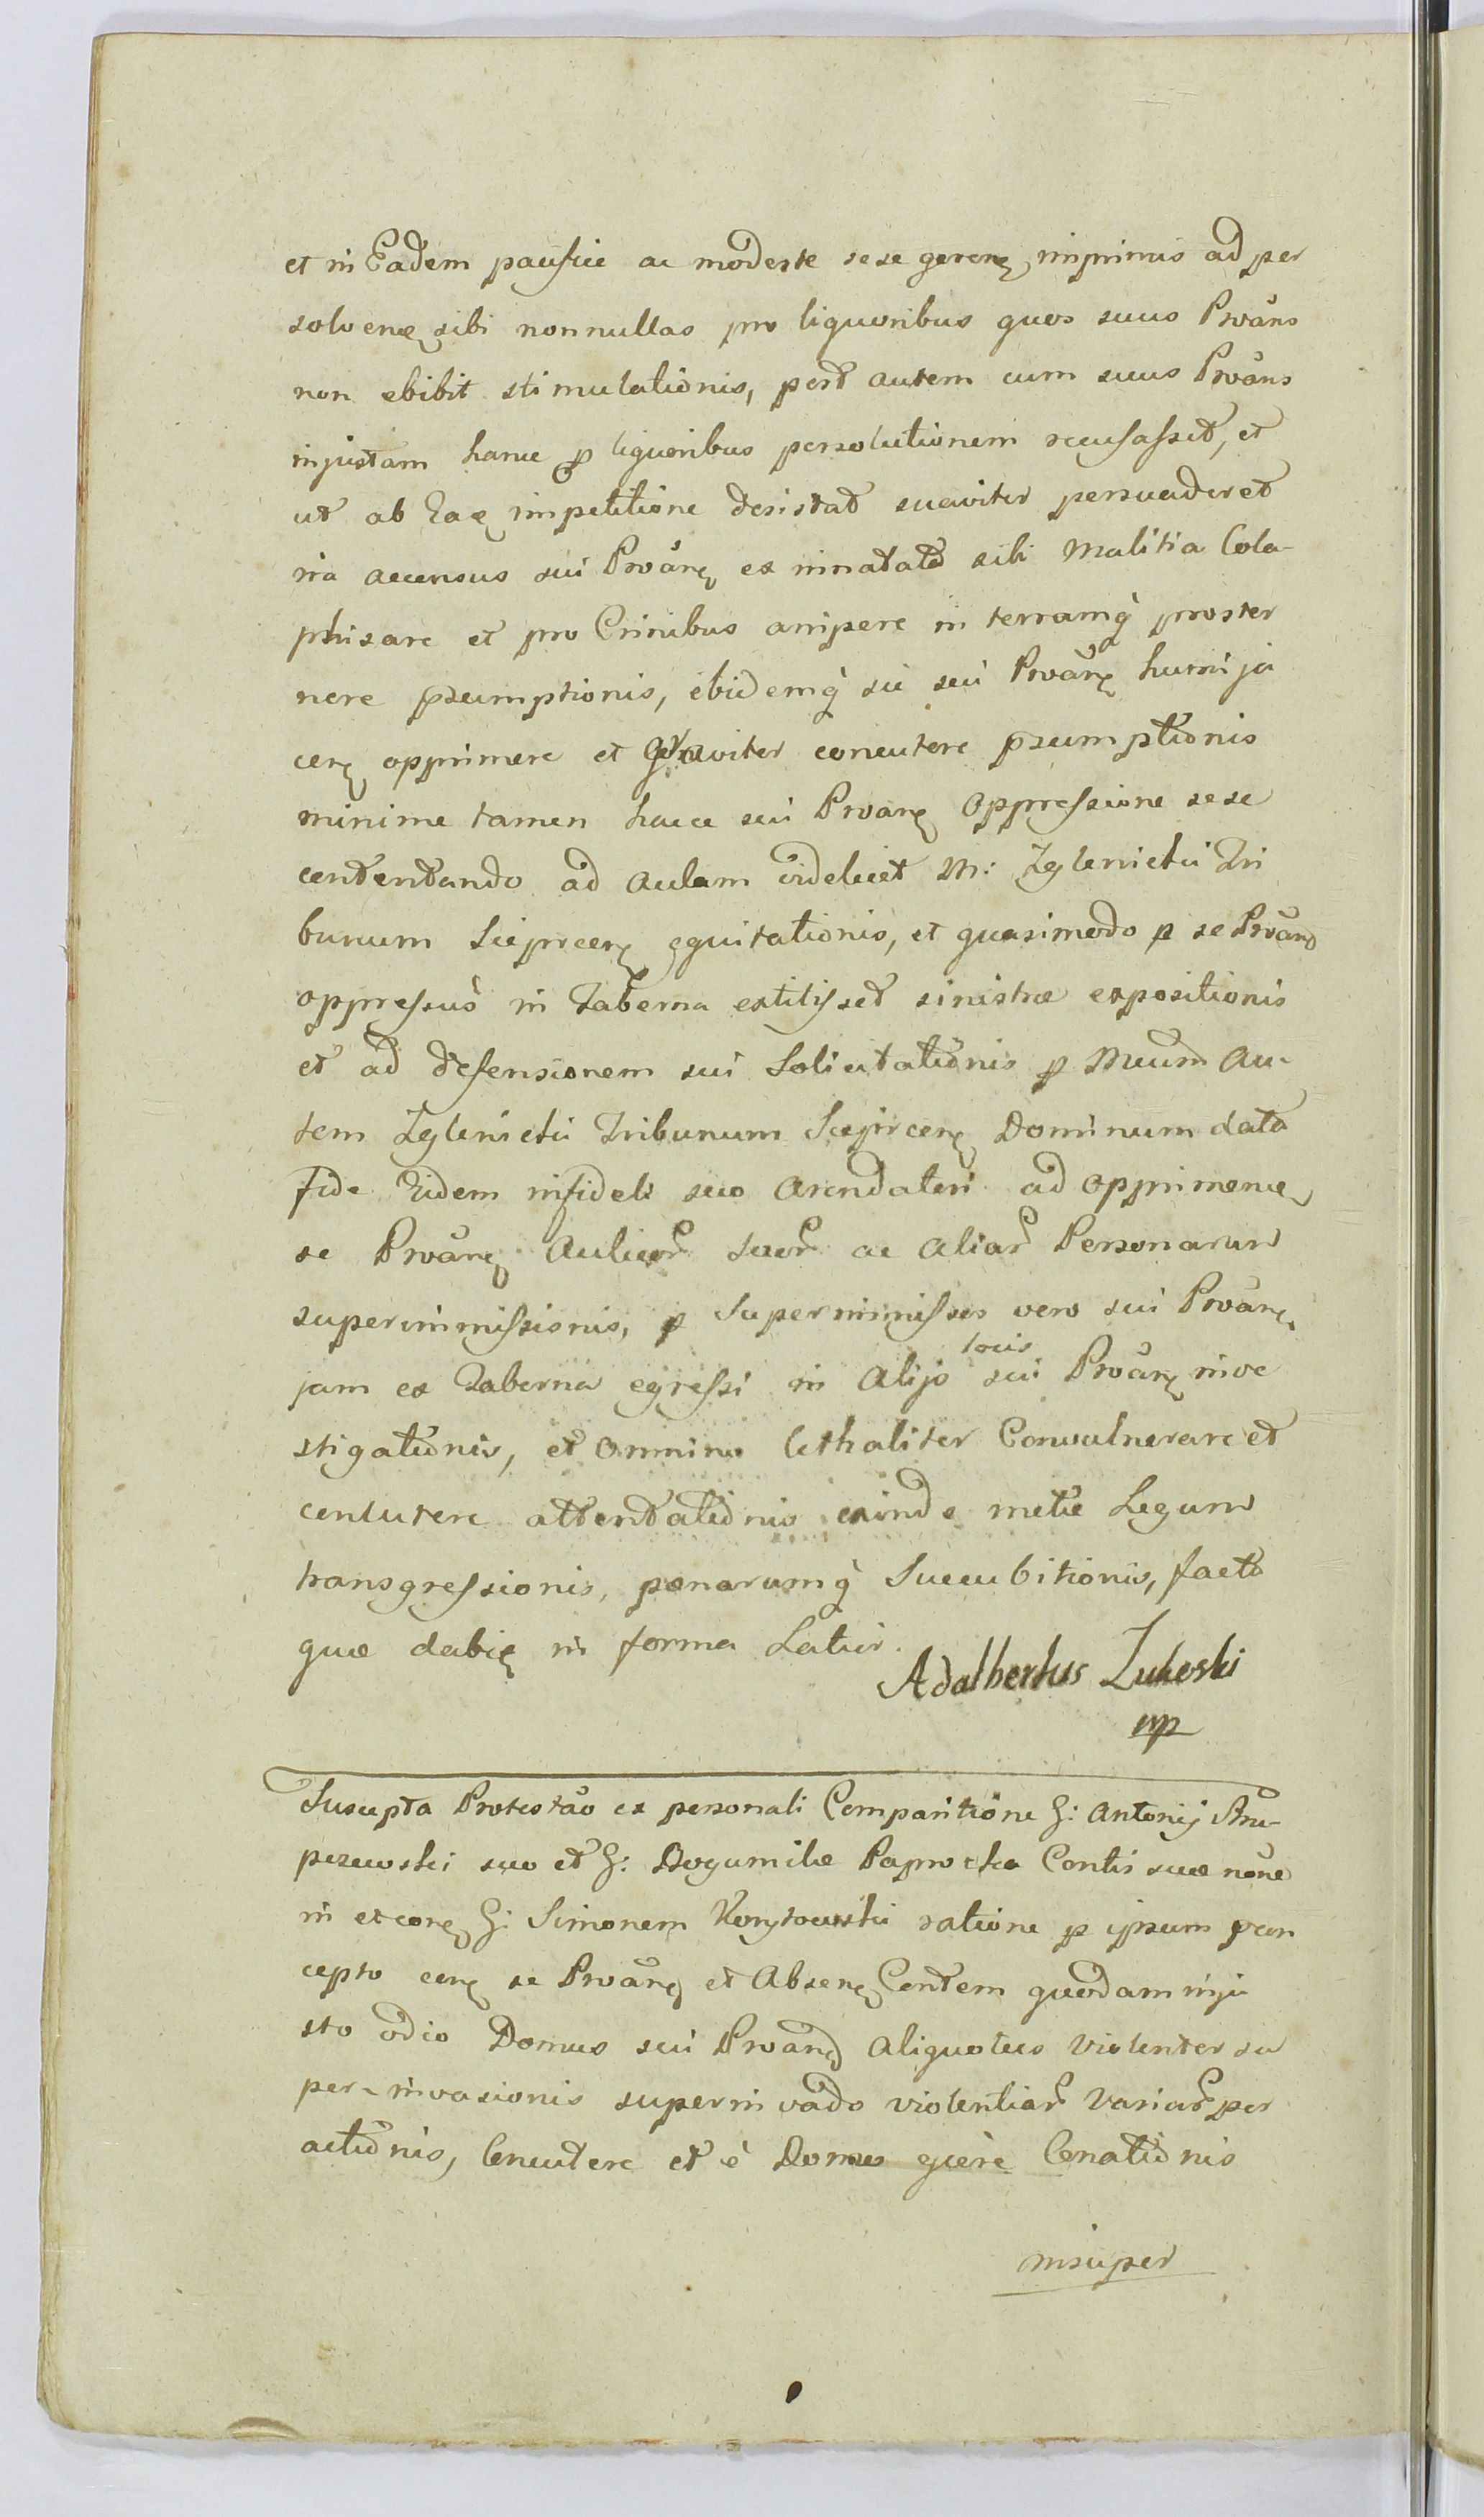 et in Eadem pacifice ac modeste sese geren, imprimis ad per
solven sibi nonnullas pro liquoribus quos suus Proãns
non ebibit stimulationis, post autem cum suus Proãns
injustam hanc p liquoribus persolutionem recusasset, et
ut ab Eaē impetitione desistat suaviter persuaderet
ira accensus sui Proãn ex innata sibi malitia Cola-
phisare et pro Crinibus arripere in terramq̀ proster
nere p̃sumptionis, ibidemq̀ sic sui Proãn humi ja
cen opprimere et graviter concutere p̃sumptionis
minime tamen hacce sui Proan oppressione sese
contentando ad aulam videlicet M: Zglenicki Tri
bunum Sieprcen equitationis, et quasimodo p se Proãn
oppressus in Taberna extitisset sinistræ expositionis
et ad defensionem sui Solicitationis p Mcum au-
tem Zglenicki Tribunum Sieprcen Dominum data
fide Eidem infideli suo Arendatori ad opprimen
se Proãn Aulicor suor ac aliar Personarum
superimmissionis, p Superimmissos vero sui Proãn
jam ex Taberna egressi in alijs locis sui Proãn inve
stigationis, et omnino lethaliter Convulnerare et
contutere attentationis exinde metœ Legum
transgressionis, pœnarumq̀ Succubitionis, facto
quæ dabi in forma Latior.
Adalbertus Zukoski
mp
Suscepta Protestão ex personali Comparitione G: Antonij Stru-
pczewski suo et G: Bogumilæ Paprocka Contis suæ nõne
in et con G: Simonem Korytowski ratione p ipsum prae
cepto con se Proãn et Absen Contem quodam inju
sto odio Domus sui Proan aliquoties Violenter su
per-invasionis superinvado violentiar Variar per
actionis, Concutere et è Domo ejicere Conationis
insuper